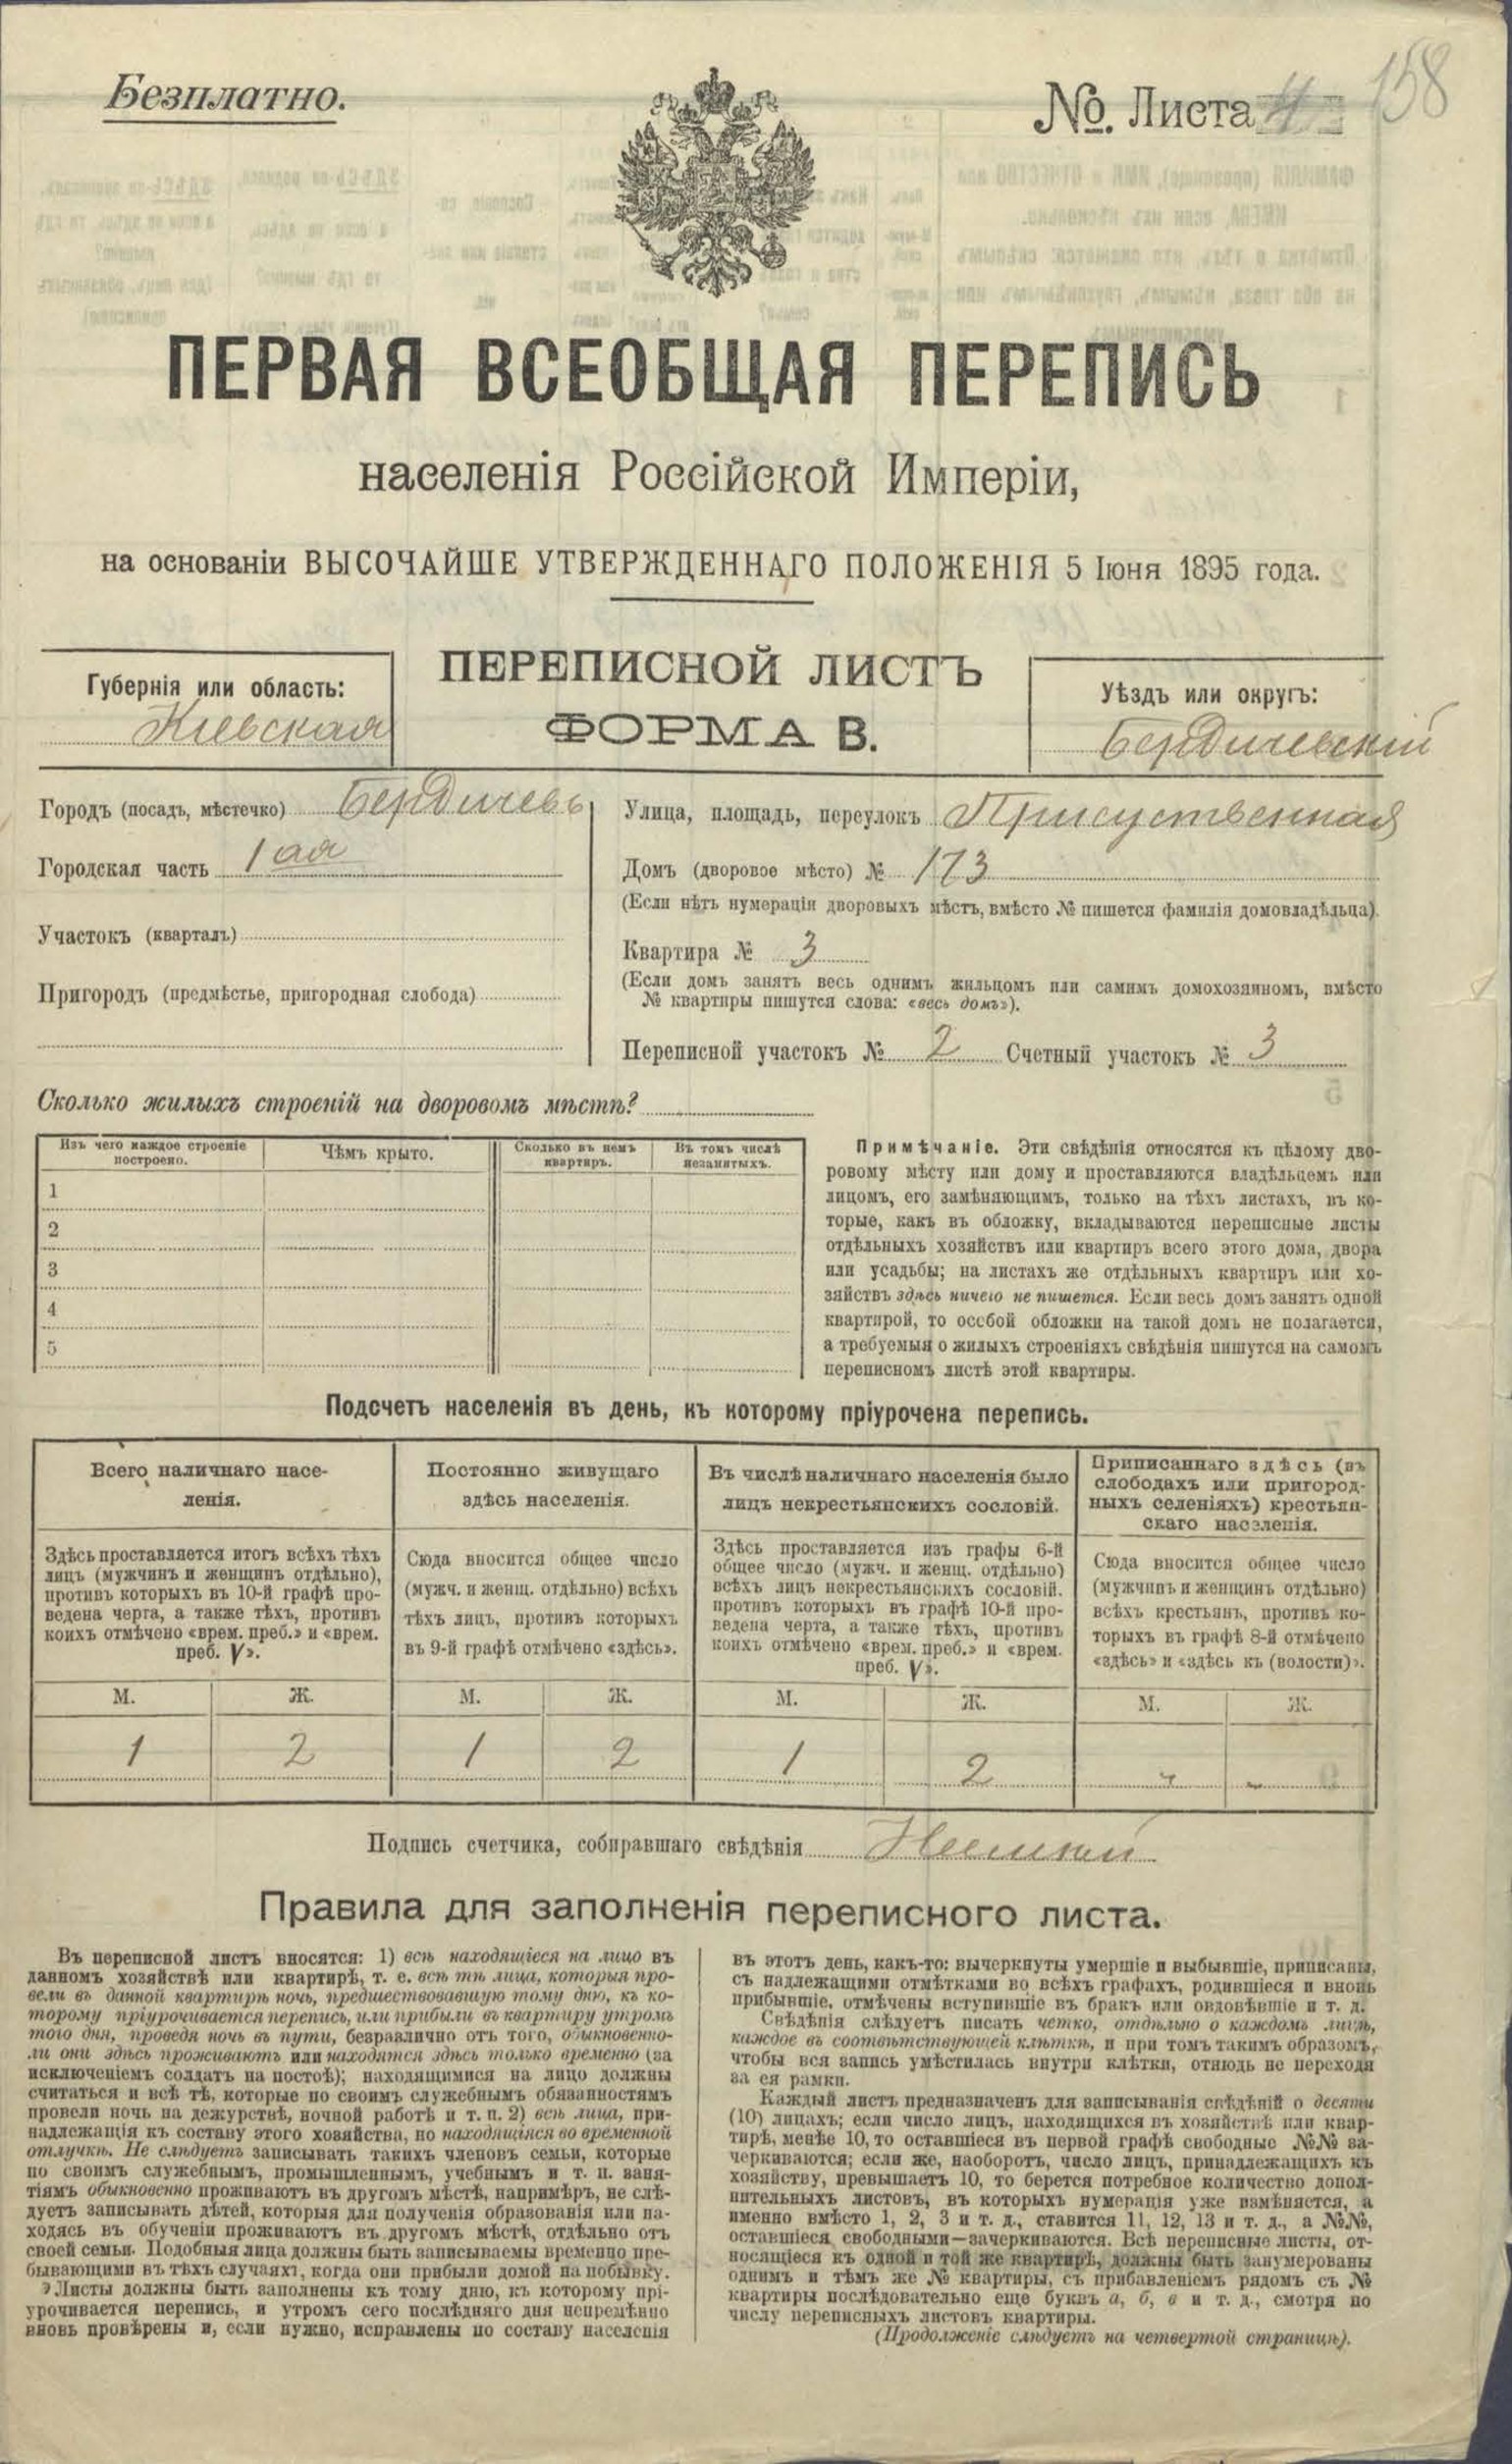 Безплатно.
№. Листа 158
ПЕРВАЯ ВСЕОБЩАЯ ПЕРЕПИСЬ
населенія Россійской Имперіи,
на основаніи ВЫСОЧАЙШЕ УТВЕРЖДЕННАГО ПОЛОЖЕНІЯ 5 Іюня 1895 года.
ПЕРЕПИСНОЙ ЛИСТЪ
ФОРМА В.
Губернія или область:
Кіевская
Уѣздъ или округъ:
Бердичевскій
Городъ (посадъ, мѣстечко) Бердичевъ
Городская часть 1ая
Участокъ (кварталъ)
Пригородъ (предмѣстье, пригородная слобода)
Улица, площадь, переулокъ Присуственная
Домъ (дворовое мѣсто) № 173
(Если нѣтъ нумераціи дворовыхъ мѣстъ, вмѣсто № пишется фамилія домовладѣльца).
Квартира № 3
(Если домъ занятъ весь однимъ жильцомъ или самимъ домохозяиномъ, вмѣсто
№ квартиры пишутся слова: «весь домъ»).
Переписной участокъ № 2 Счетный участокъ № 3
Сколько жилыхъ строеній на дворовомъ мѣстѣ?
Изъ чего каждое строеніе
построено.
Чѣмъ крыто.
Сколько въ немъ
квартиръ.
Въ томъ числѣ
незанятыхъ.
1
2
3
4
5
Примѣчаніе. Эти свѣдѣнія относятся къ цѣлому дво-
ровому мѣсту или дому и проставляются владѣльцемъ или
лицомъ, его замѣняющимъ, только на тѣхъ листахъ, въ ко-
торые, какъ въ обложку, вкладываются переписные листы
отдѣльныхъ хозяйствъ или квартиръ всего этого дома, двора
или усадьбы; на листахъ же отдѣльныхъ квартиръ или хо-
зяйствъ здѣсь ничего не пишется. Если весь домъ занятъ одной
квартирой, то особой обложки на такой домъ не полагается,
а требуемыя о жилыхъ строеніяхъ свѣдѣнія пишутся на самомъ
переписномъ листѣ этой квартиры.
Подсчетъ населенія въ день, къ которому пріурочена перепись.
Всего наличнаго насе-
ленія.
Постоянно живущаго
здѣсь населенія.
Въ числѣ наличнаго населенія было
лицъ некрестьянскихъ сословій.
Приписаннаго здѣсь (въ
слободахъ или пригород-
ныхъ селеніяхъ) крестьян-
скаго населенія.
Здѣсь проставляется итогъ всѣхъ тѣхъ
лицъ (мужчинъ и женщинъ отдѣльно),
противъ которыхъ въ 10-й графѣ про-
ведена черта, а также тѣхъ, противъ
коихъ отмѣчено «врем. преб.» и «врем.
преб. V».
Сюда вносится общее число
(мужч. и женщ. отдѣльно) всѣхъ
тѣхъ лицъ, противъ которыхъ
въ 9-й графѣ отмѣчено «здѣсь».
Здѣсь проставляется изъ графы 6-й
общее число (мужч. и женщ. отдѣльно)
всѣхъ лицъ некрестьянскихъ сословій.
противъ которыхъ въ графѣ 10-й про-
ведена черта, а также тѣхъ, противъ
коихъ отмѣчено «врем. преб.» и «врем.
преб. V».
Сюда вносится общее число
(мужчинъ и женщинъ отдѣльно)
всѣхъ крестьянъ, противъ ко-
торыхъ въ графѣ 8-й отмѣчено
«здѣсь» и «здѣсь къ (волости)».
М. Ж. М. Ж. М. Ж. М. Ж.
1 2 1 2 1 2 - -
Подпись счетчика, собиравшаго свѣдѣнія
Правила для заполненія переписного листа.
Въ переписной листъ вносятся: 1) всѣ находящіеся на лицо въ
данномъ хозяйствѣ или квартирѣ, т. е. всѣ тѣ лица, которыя про-
вели въ данной квартирѣ ночь, предшествовавшую тому дню, къ ко-
торому пріурочивается перепись, или прибыли въ квартиру утромъ
того дня, проведя ночь въ пути, безразлично отъ того, обыкновенно-
ли они здѣсь проживаютъ или находятся здѣсь только временно (за
исключеніемъ солдатъ на постоѣ); находящимися на лицо должны
считаться и всѣ тѣ, которые по своимъ служебнымъ обязанностямъ
провели ночь на дежурствѣ, ночной работѣ и т. п. 2) всѣ лица, при-
надлежащія къ составу этого хозяйства, но находящіяся во временной
отлучкѣ. Не слѣдуетъ записывать такихъ членовъ семьи, которые
по своимъ служебнымъ, промышленнымъ, учебнымъ и т. п. заня-
тіямъ обыкновенно проживаютъ въ другомъ мѣстѣ, напримѣръ, не слѣ-
дуетъ записывать дѣтей, которыя для полученія образованія или на-
ходясь въ обученіи проживаютъ въ другомъ мѣстѣ, отдѣльно отъ
своей семьи. Подобныя лица должны быть записываемы временно пре-
бывающими въ тѣхъ случаяхъ, когда они прибыли домой на побывку.
Листы должны быть заполнены къ тому дню, къ которому прі-
урочивается перепись, и утромъ сего послѣдняго дня непремѣнно
вновь провѣрены и, если нужно, исправлены по составу населенія
въ этотъ день, какъ-то: вычеркнуты умершіе и выбывшіе, приписаны,
съ надлежащими отмѣтками во всѣхъ графахъ, родившіеся и вновь
прибывшіе, отмѣчены вступившіе въ бракъ или овдовѣвшіе и т. д.
Свѣдѣнія слѣдуетъ писать четко, отдѣльно о каждомъ лицѣ,
каждое въ соотвѣтствующей клѣткѣ, и при томъ такимъ образомъ,
чтобы вся запись умѣстилась внутри клѣтки, отнюдь не переходя
за ея рамки.
Каждый листъ предназначенъ для записыванія свѣдѣній о десяти
(10) лицахъ; если число лицъ, находящихся въ хозяйствѣ или квар-
тирѣ, менѣе 10, то оставшіеся въ первой графѣ свободные №№ за-
черкиваются; если же, наоборотъ, число лицъ, принадлежащихъ къ
хозяйству, превышаетъ 10, то берется потребное количество допол-
нительныхъ листовъ, въ которыхъ нумерація уже измѣняется, а
именно вмѣсто 1, 2, 3 и т. д., ставится 11, 12, 13 и т. д., а №№,
оставшіеся свободными—зачеркиваются. Всѣ переписные листы, от-
носящіеся къ одной и той же квартирѣ, должны быть занумерованы
однимъ и тѣмъ же № квартиры, съ прибавленіемъ рядомъ съ №
квартиры послѣдовательно еще буквъ а, б, в и т. д., смотря по
числу переписныхъ листовъ квартиры.
(Продолженіе слѣдуетъ на четвертой страницѣ).